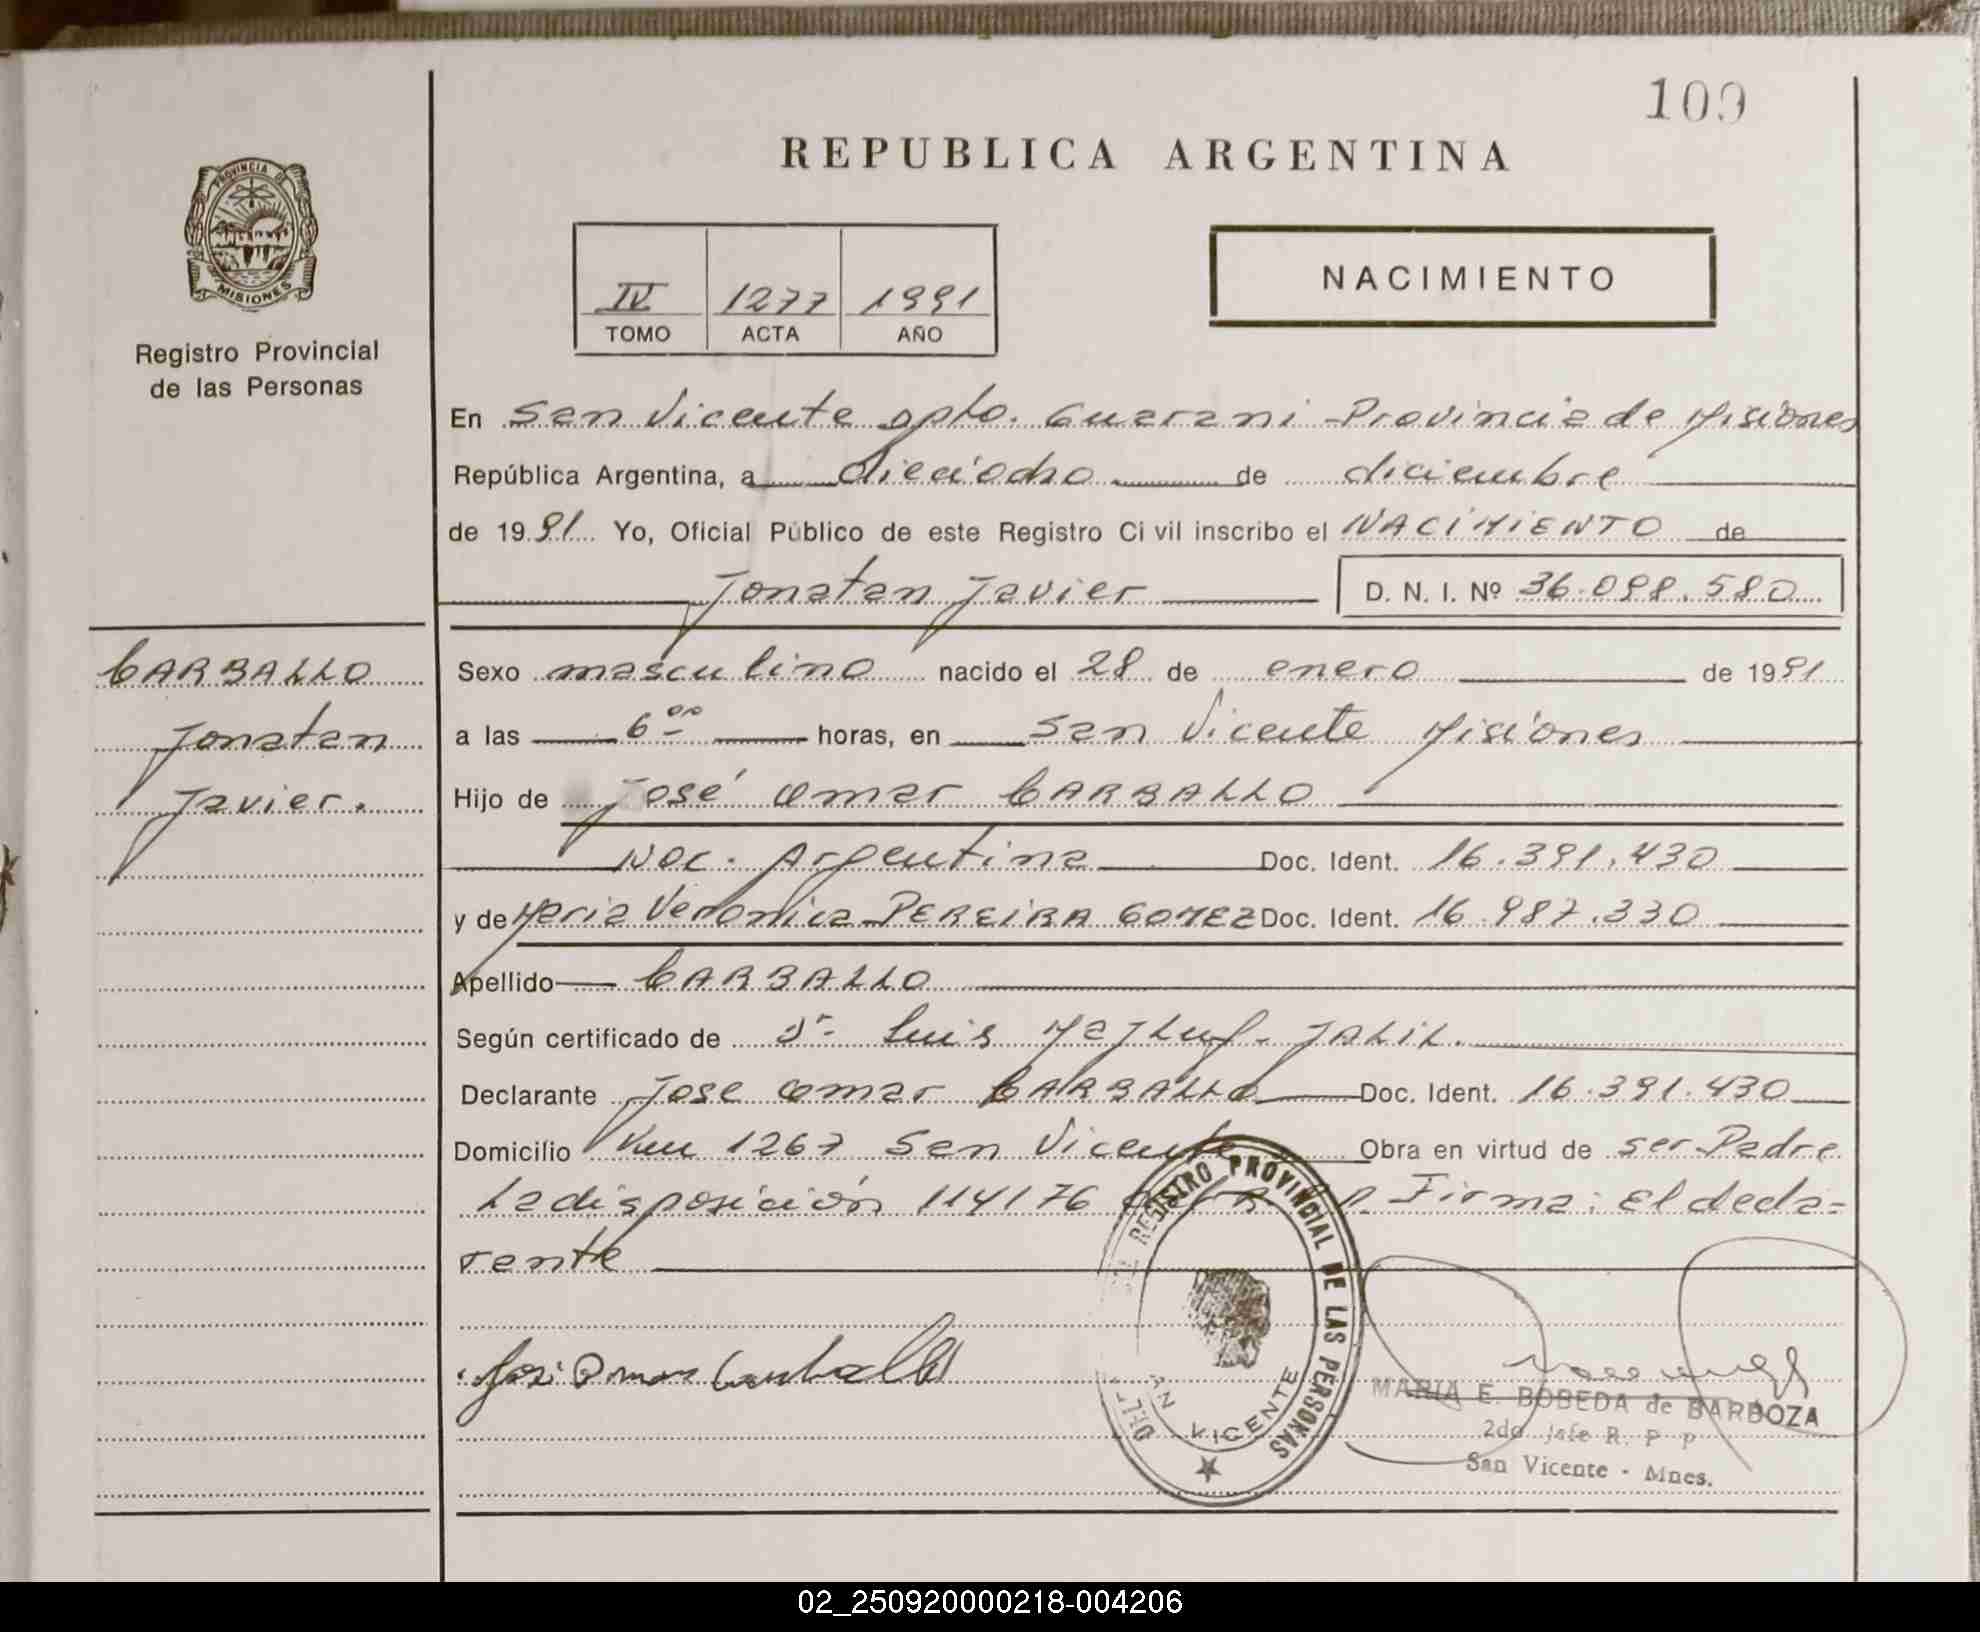 109
REPUBLICA ARGENTINA
PROVINCIA DE
MISIONES
Registro Provincial
de las Personas
IV 1277 1991
TOMO ACTA AÑO
NACIMIENTO
En San Vicente Dpto. Guarani - Provincia de Misiones
República Argentina, a dieciocho de diciembre
de 1991 Yo, Oficial Público de este Registro Civil inscribo el NACIMIENTO de
Jonatan Javier D. N. I. Nº 36.098.580
CARBALLO
Jonatan
Javier.
Sexo masculino nacido el 28 de enero de 1991
a las 6 00 horas, en San Vicente Misiones
Hijo de José Omar CARBALLO
Nac. Argentina Doc. Ident. 16.391.430
y de Maria Veronica PEREIRA GOMEZ Doc. Ident. 16.987.330
Apellido CARBALLO
Según certificado de Dr. Luis JALIL.
Declarante Jose Omar CARBALLO Doc. Ident. 16.391.430
Domicilio Km 1267 San Vicente Obra en virtud de ser Padre
La disposición 114176 Firma: El decla-
rante
José Omar Carballo
REGISTRO PROVINCIAL DE LAS PERSONAS
VICENTE
MARIA E. BOBEDA de BARBOZA
2do Jefe R. P P
San Vicente - Mnes.
02_250920000218-004206